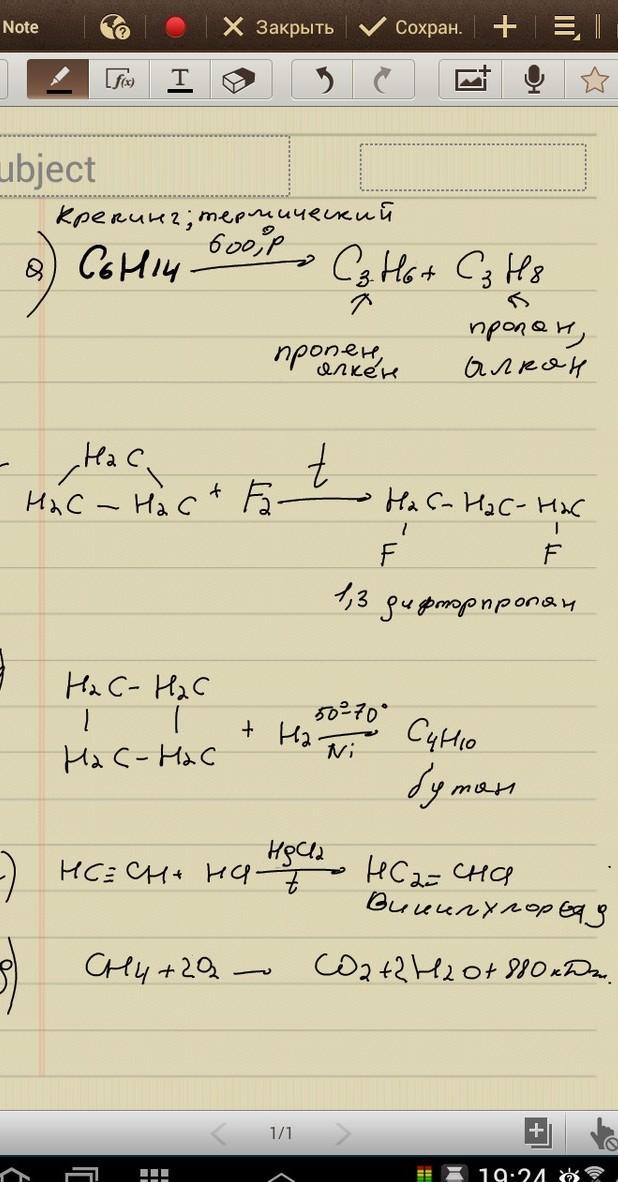 Note Закрыть Сохран.
f(x) T
ubject
крекинг; термический
а) C6H14 600°, P → C3H6 + C3H8
пропен, алкен
пропан, алкан
H2C
H2C – H2C + F2 t → H2C – H2C – H2C
F F
1,3 дифторпропан
H2C – H2C
H2C – H2C + H2 50°-70° Ni → C4H10
бутан
HC≡CH + HCl HgCl2 t → HC2=CHCl
Винилхлорид
CH4 + 2O2 — CO2 + 2H2O + 880 кДж.
1/1
19:24